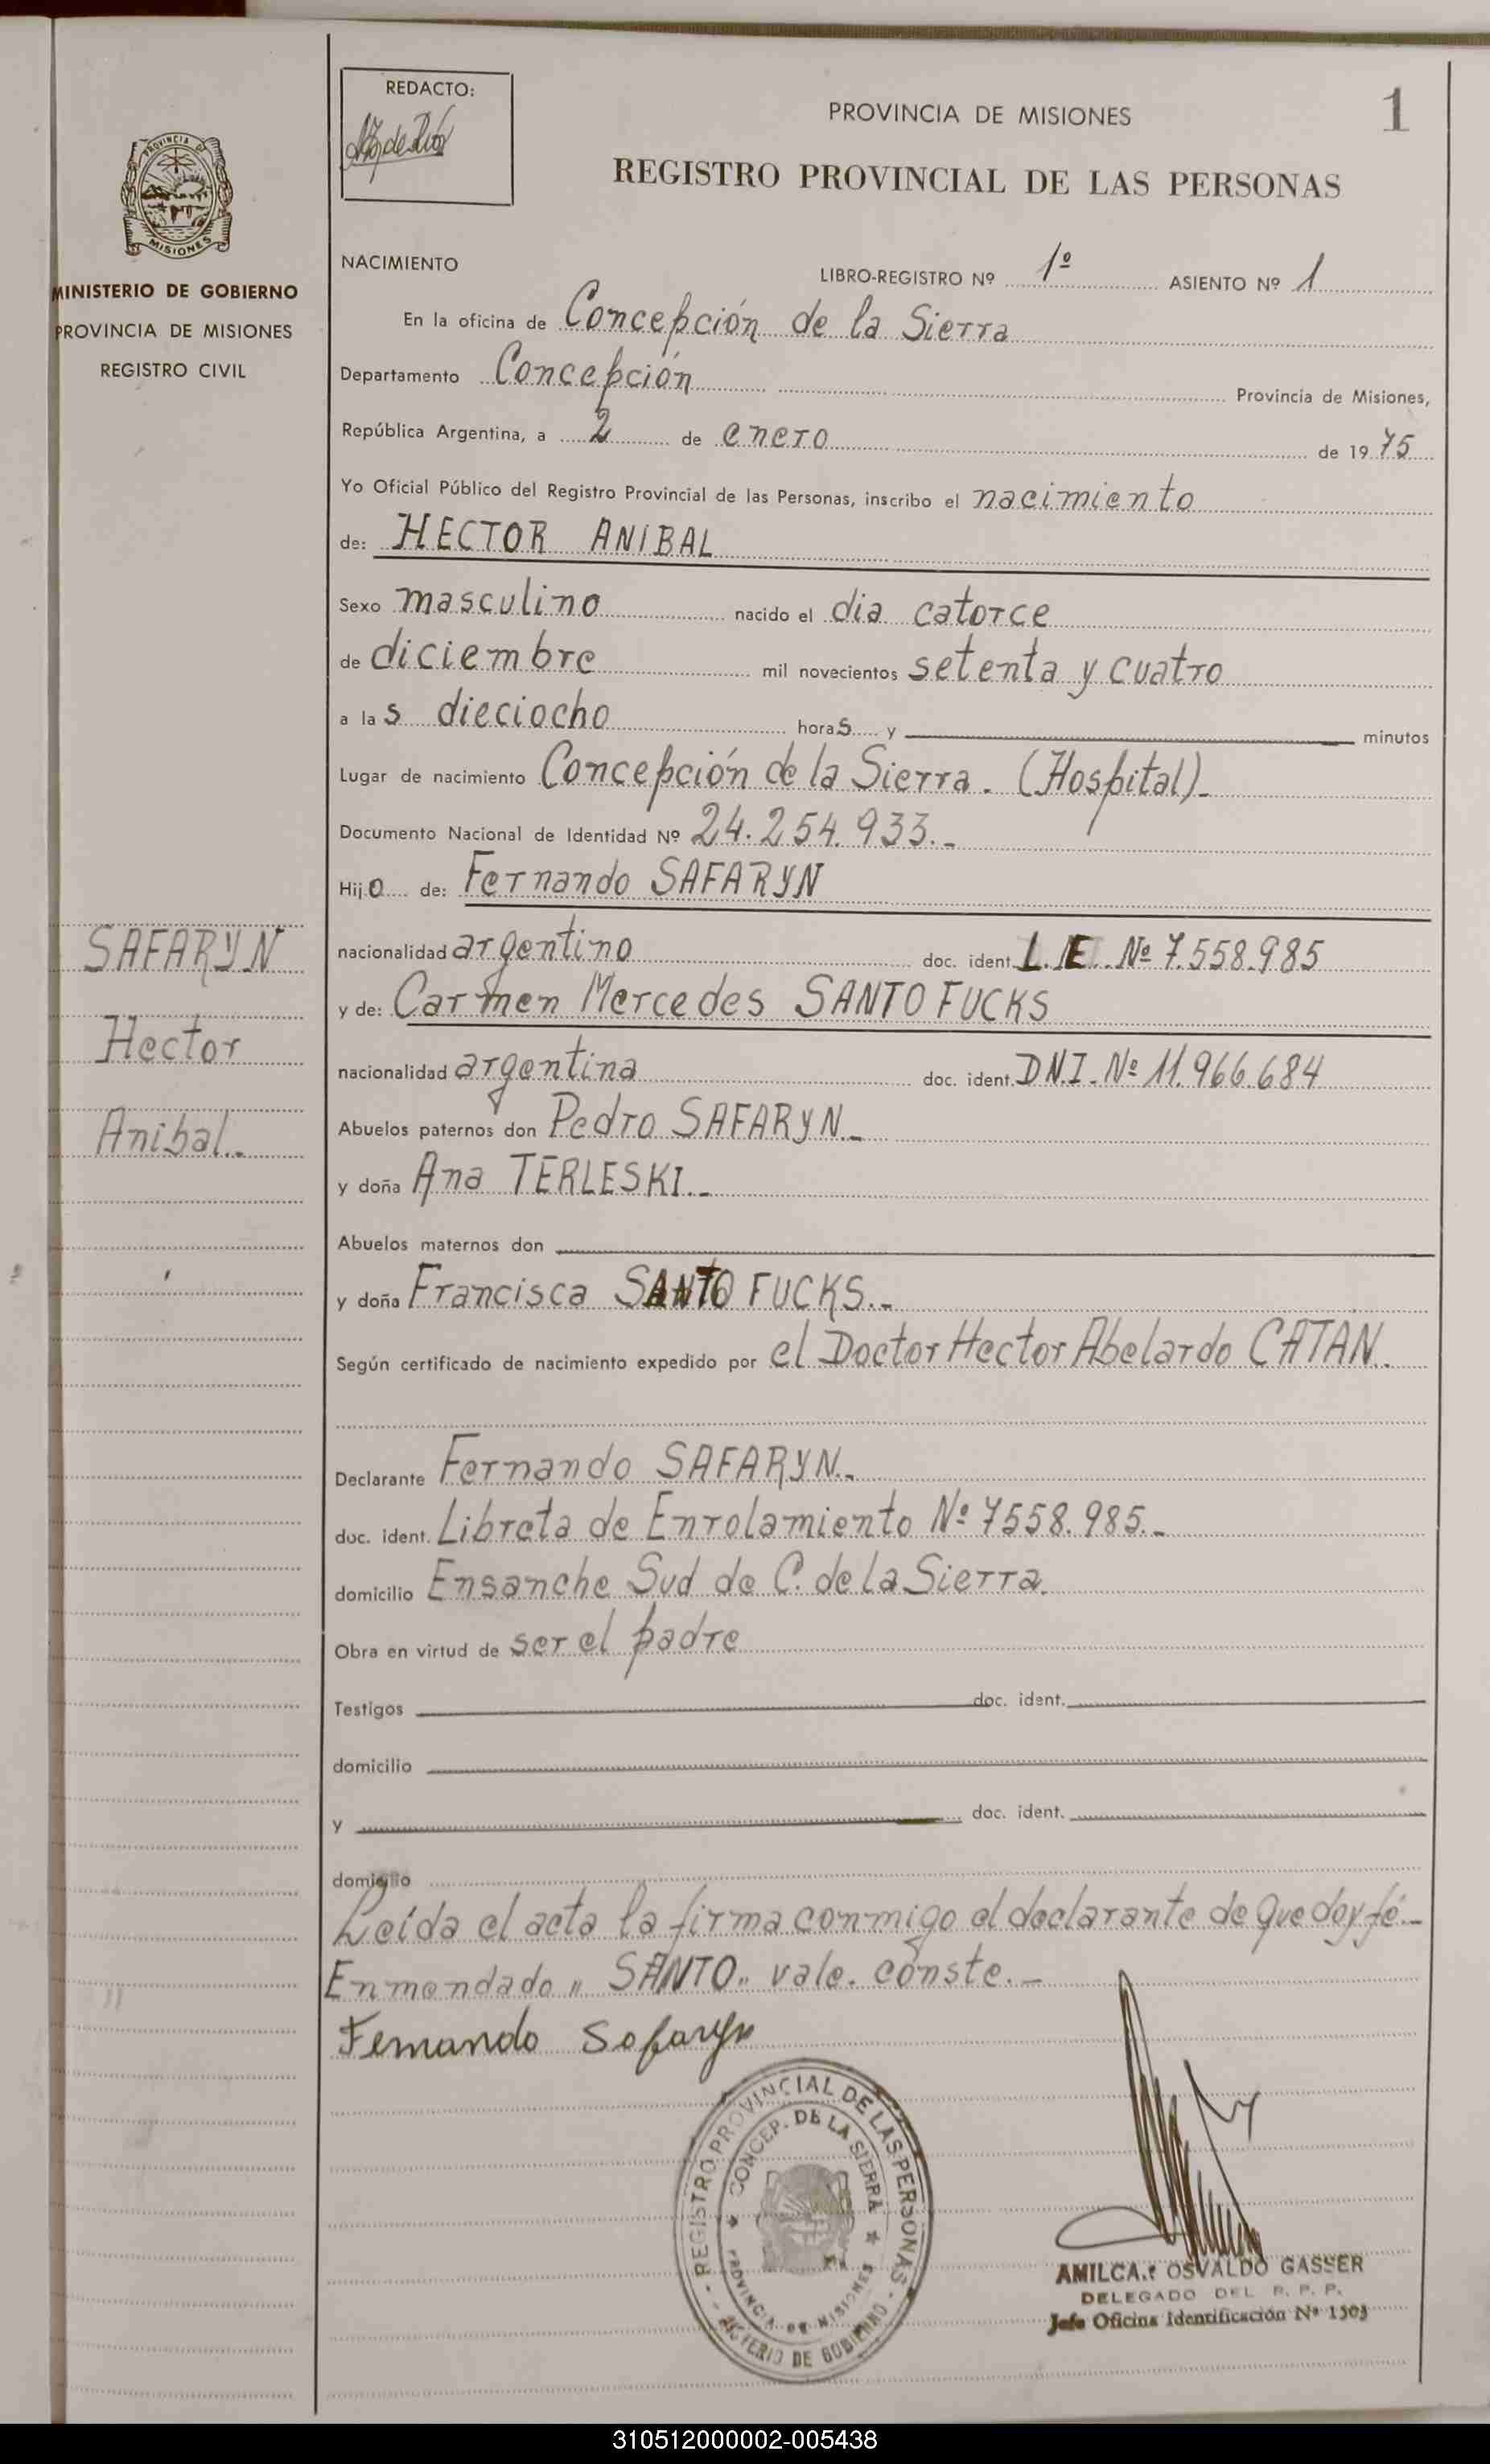 REDACTO:
PROVINCIA DE MISIONES
1
REGISTRO PROVINCIAL DE LAS PERSONAS
PROVINCIA DE
MISIONES
MINISTERIO DE GOBIERNO
PROVINCIA DE MISIONES
REGISTRO CIVIL
NACIMIENTO
LIBRO-REGISTRO Nº 1º ASIENTO Nº 1
En la oficina de Concepción de la Sierra
Departamento Concepción Provincia de Misiones,
República Argentina, a 2 de enero de 1975
Yo Oficial Público del Registro Provincial de las Personas, inscribo el nacimiento
de: HECTOR ANIBAL
Sexo masculino nacido el dia catorce
de diciembre mil novecientos setenta y cuatro
a las dieciocho horas y minutos
Lugar de nacimiento Concepción de la Sierra. (Hospital).-
Documento Nacional de Identidad Nº 24.254.933.-
Hijo de: Fernando SAFARYN
SAFARYN
Hector
Anibal.-
nacionalidad argentino doc. ident. L.E. Nº 7.558.985
y de: Carmen Mercedes SANTO FUCKS
nacionalidad argentina doc. ident. D.N.I.- Nº 11.966.684
Abuelos paternos don Pedro SAFARYN.-
y doña Ana TERLESKI.-
Abuelos maternos don
y doña Francisca SANTO FUCKS.-
Según certificado de nacimiento expedido por el Doctor Hector Abelardo CATAN.
Declarante Fernando SAFARYN.-
doc. ident. Libreta de Enrolamiento Nº 7558.985.-
domicilio Ensanche Sud de C. de la Sierra.
Obra en virtud de ser el padre
Testigos doc. ident.
domicilio
y doc. ident.
domicilio
Leída el acta la firma conmigo el declarante de que doy fé.-
Enmendado " SANTO" vale. conste.-
Fernando Safaryn
REGISTRO PROVINCIAL DE LAS PERSONAS
CONCEP. DE LA SIERRA
PROVINCIA DE MISIONES
DE GOBIERNO
AMILCAR OSVALDO GASSER
DELEGADO DEL R. P. P.
Jefe Oficina Identificación Nº 1505
310512000002-005438